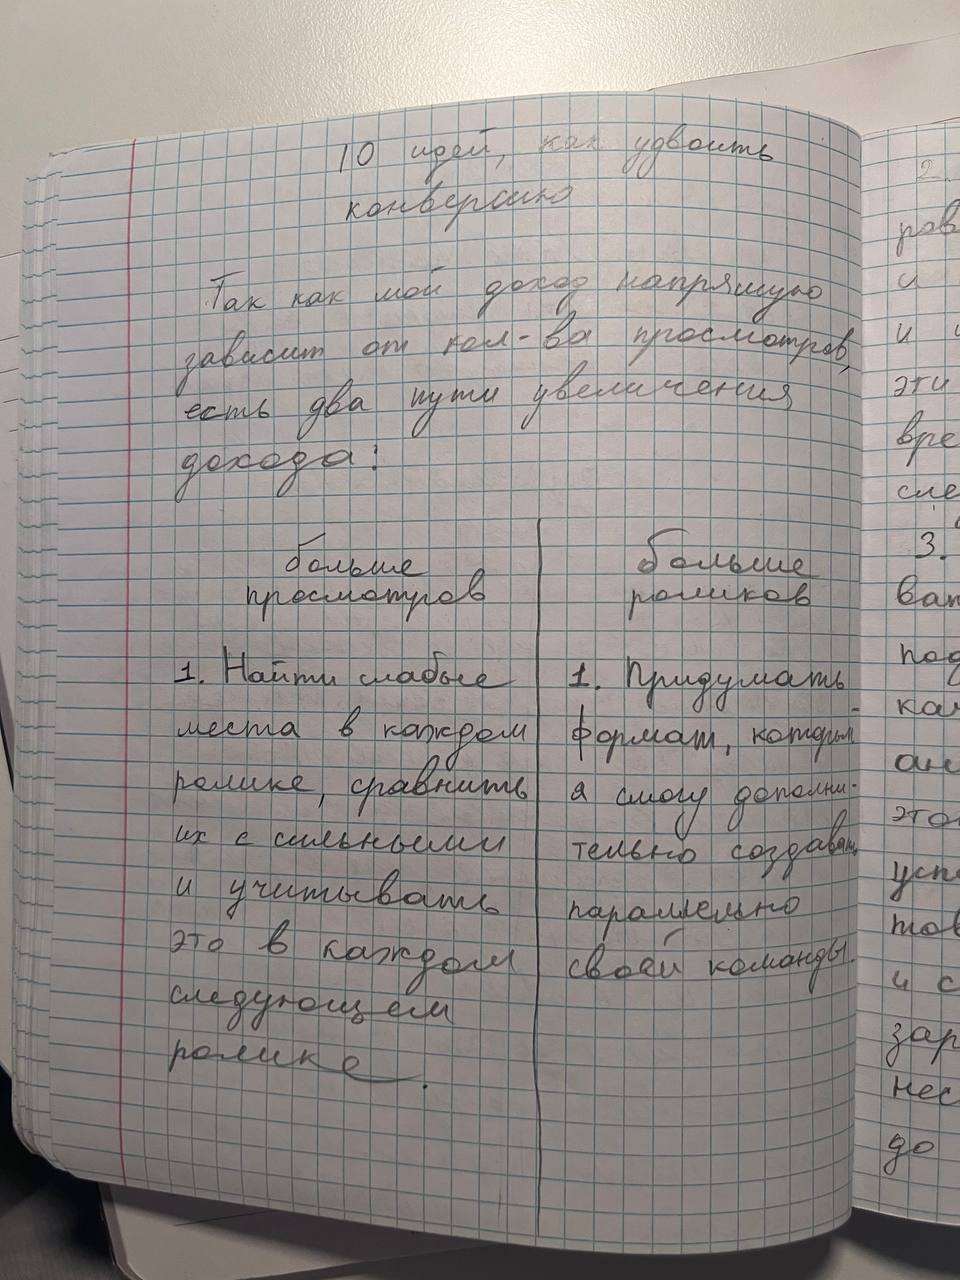 10 идей, как удвоить
конверсию
Так как мой доход напрямую
зависит от кол-ва просмотров,
есть два пути увеличения
дохода:
больше
просмотров
1. Найти слабые
места в каждом
ролике, сравнить
их с сильными
и учитывать
это в каждом
следующем
ролике.
больше
роликов
1. Придумать
формат, который
я смогу дополни-
тельно создавать
параллельно
своей команды.
2.
и
и
эти
3.
это
и с
до